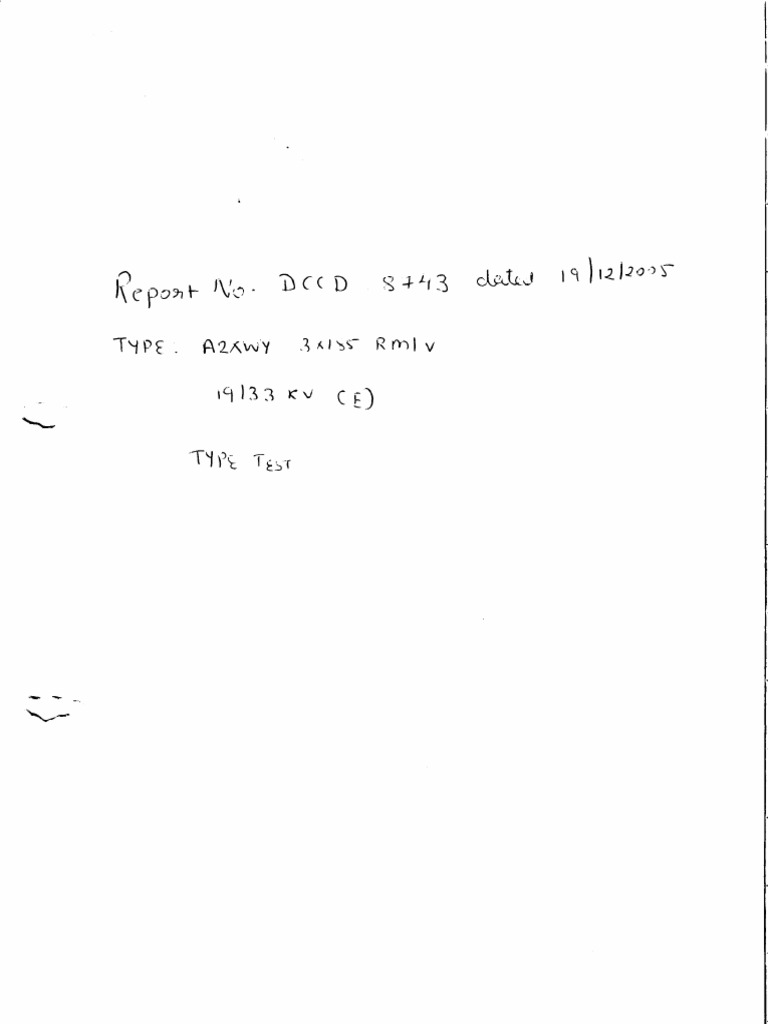 Report No. DCCD 8743 dated 19/12/2005
TYPE. A2XWY Rm/v
19/33 KV (E)
TYPE TEST